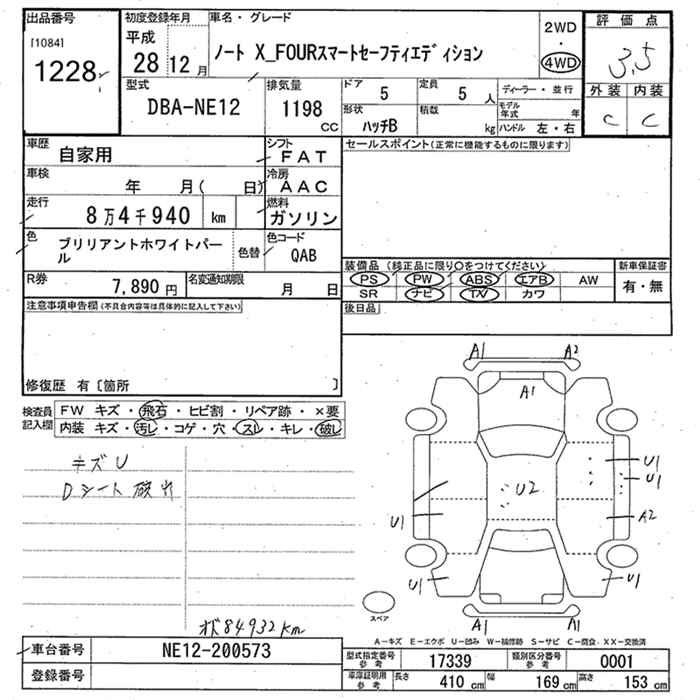 出品番号 初度登録年月 車名・グレード 2WD ・ 4WD 評価点
[1084] 平成 3.5
1228 28 12月 ノート X_FOURスマートセーフティエディション
型式 排気量 ドア 定員 ディーラー・並行 外装 内装
DBA-NE12 1198 cc 5 5人 モデル年式 年 C C
形状 積載
ハッチB kg ハンドル 左・右
車歴 自家用 シフト FAT セールスポイント(正常に機能するものに限ります)
車検 年 月( 日) 冷房 AAC
走行 8万4千940 km 燃料 ガソリン
色 ブリリアントホワイトパール 色替 色コード QAB
装備品(純正品に限り○をつけてください) 新車保証書
R券 7,890円 名変通知期限 月 日 PS PW ABS エアB AW 有・無
SR ナビ TV カワ
注意事項申告欄(不具合内容等は具体的に記入して下さい) 後日品
修復歴 有〔箇所 〕
検査員記入欄 FW キズ・飛石・ヒビ割・リペア跡・×要
内装 キズ・汚レ・コゲ・穴・スレ・キレ・破レ
キズU
Dシート破れ
A1 A2
A1
U2
U1
U1
U1 A2
U1 U1
スペア
A1 A1
84932km
A−キズ E−エクボ U−凹み W−補修跡 S−サビ C−腐食 XX−交換済
車台番号 NE12-200573 型式指定番号 参考 17339 類別区分番号 参考 0001
登録番号 車庫証明用 参考 長さ 410cm 幅 169cm 高さ 153cm